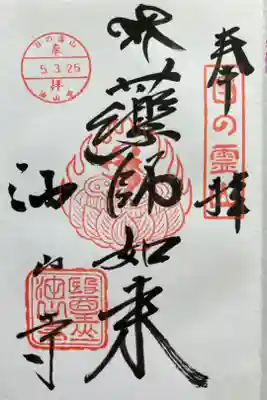 奉拝
目の霊山
藥師如来
油山寺
目の霊山
奉拝
5.3.25
油山寺